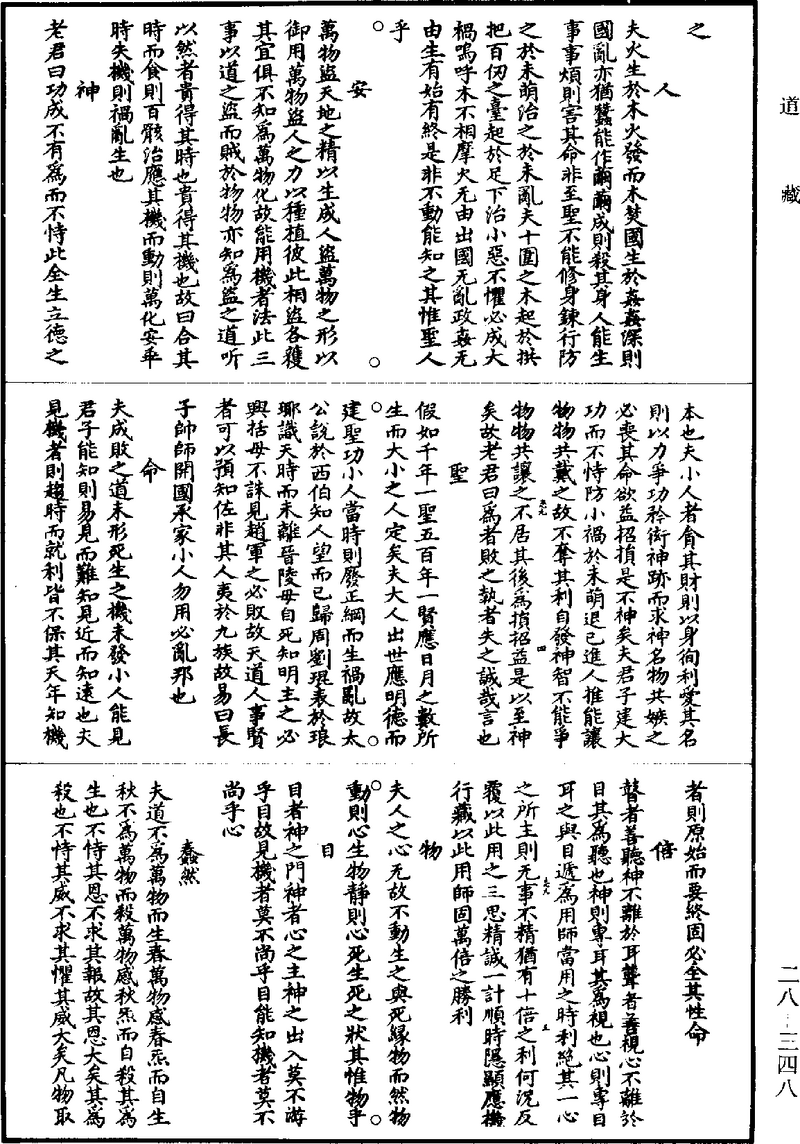 道藏
之
人
夫火生於木火發而木焚國生於姦姦深則
國亂亦猶蠶能作繭繭成則殺其身人能生
事事煩則害其命非至聖不能修身鍊行防
之於未萌治之於未亂夫十圍之木起於拱
把百仞之臺起於足下治小惡不懼必成大
禍嗚呼木不相摩火无由出國无亂政姦无
由生有始有終是非不動能知之其惟聖人
乎
安
萬物盜天地之精以生成人盜萬物之形以
御用萬物盜人之力以種植彼此相盜各獲
其宜俱不知為萬物化故能用機者法此三
事以道之盜而賊於物物亦知為盜之道所
以然者貴得其時也貴得其機也故曰合其
時而食則百骸治應其機而動則萬化安乖
時失機則禍亂生也
神
老君曰功成不有為而不恃此全生立德之
本也夫小人者貪其財則以身徇利愛其名
則以力爭功矜衒神跡而求神名物共嫉之
必喪其命欲益招損是不神矣夫君子建大
功而不恃防小禍於未萌退己進人推能讓
物物共戴之故不奪其利自發神智不能爭
物物共讓之不居其後為損招益是以至神
矣故老君曰為者敗之執者失之誠哉言也
聖
假如千年一聖五百年一賢應日月之數所
生而大小之人定矣夫大人出世應明德而
建聖功小人當時則廢正綱而生禍亂故太
公說於西伯知人望而已歸周劉琨表於琅
琊識天時而未離晉陵母自死知明主之必
興括母不誅見趙軍之必敗故天道人事賢
者可以預知佐非其人夷於九族故易曰長
子帥師開國承家小人勿用必亂邦也
命
夫成敗之道未形死生之機未發小人能見
君子能知則易見而難知見近而知遠也夫
見機者則趨時而就利皆不保其天年知機
者則原始而要終固必全其性命
倍
瞽者善聽神不離於耳聾者善視心不離於
目其為聽也神則專耳其為視也心則專目
耳之與目遞為用師當用之時利絕其一心
之所主則无事不精猶有十倍之利何況反
覆以此用之三思精誠一計順時隱顯應機
行藏以此用師固萬倍之勝利
物
夫人之心无故不動生之與死緣物而然物
動則心生物靜則心死生死之狀其惟物乎
目
目者神之門神者心之主神之出入莫不游
乎目故見機者莫不尚乎目能知機者莫不
尚乎心
蠢然
夫道不為萬物而生春萬物感春炁而自生
秋不為萬物而殺萬物感秋炁而自殺其為
生也不恃其恩不求其報故其恩大矣其為
殺也不恃其威不求其懼其威大矣凡物取
二八-三四八